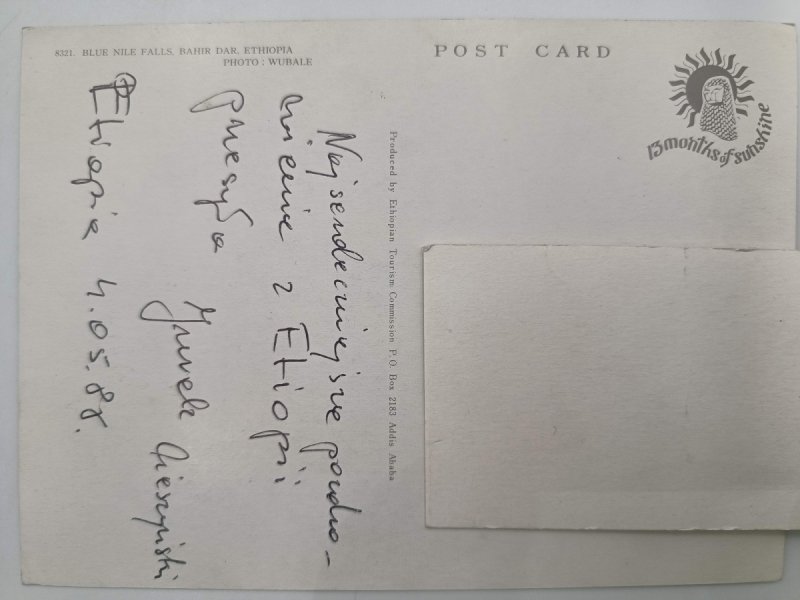 8321. BLUE NILE FALLS, BAHIR DAR, ETHIOPIA
PHOTO : WUBALE
POST CARD
13 months of sunshine
Produced by Ethiopian Tourism Commission P. O. Box 2183 Addis Ababa
Najserdeczniejsze pozdro-
wienie z Etiopii
przesyła
Etiopia 4.05.88.